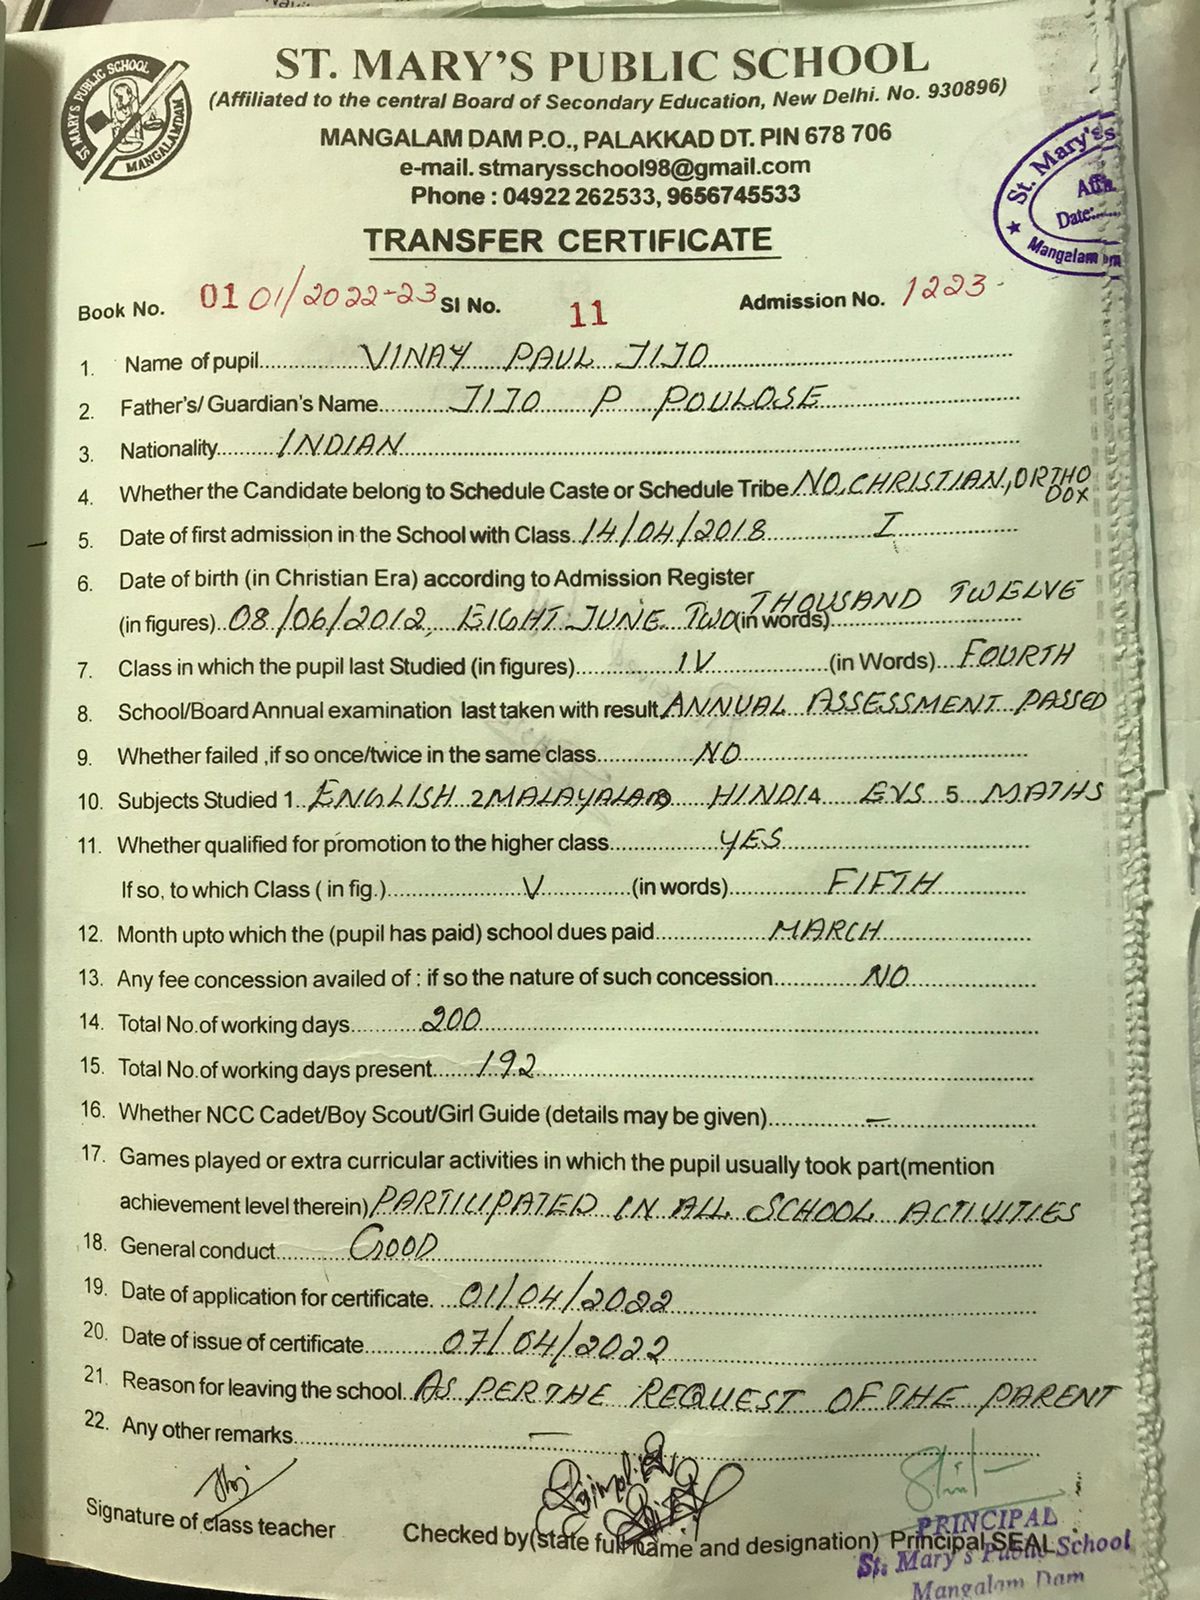 ST. MARY'S PUBLIC SCHOOL
MANGALAM DAM
ST. MARY'S PUBLIC SCHOOL
(Affiliated to the central Board of Secondary Education, New Delhi. No. 930896)
MANGALAM DAM P.O., PALAKKAD DT. PIN 678 706
e-mail. stmarysschool98@gmail.com
Phone : 04922 262533, 9656745533
St. Mary's
Date:
Mangalam
TRANSFER CERTIFICATE
Book No. 01 01/2022-23 SI No. 11 Admission No. 1223
1. Name of pupil VINAY PAUL JIJO
2. Father's/ Guardian's Name JIJO P POULOSE
3. Nationality INDIAN
4. Whether the Candidate belong to Schedule Caste or Schedule Tribe NO, CHRISTIAN, ORTHO
DOX
5. Date of first admission in the School with Class 14/04/2018 I
6. Date of birth (in Christian Era) according to Admission Register
(in figures) 08/06/2012, EIGHT JUNE TWO (in words) THOUSAND TWELVE
7. Class in which the pupil last Studied (in figures) IV (in Words) FOURTH
8. School/Board Annual examination last taken with result ANNUAL ASSESSMENT PASSED
9. Whether failed ,if so once/twice in the same class NO
10. Subjects Studied 1 ENGLISH 2 MALAYALAM 3 HINDI 4 EVS 5 MATHS
11. Whether qualified for promotion to the higher class YES
If so, to which Class ( in fig.) V (in words) FIFTH
12. Month upto which the (pupil has paid) school dues paid MARCH
13. Any fee concession availed of : if so the nature of such concession NO
14. Total No.of working days 200
15. Total No.of working days present 192
16. Whether NCC Cadet/Boy Scout/Girl Guide (details may be given) —
17. Games played or extra curricular activities in which the pupil usually took part(mention
achievement level therein) PARTICIPATED IN ALL SCHOOL ACTIVITIES
18. General conduct GOOD
19. Date of application for certificate. 01/04/2022
20. Date of issue of certificate 07/04/2022
21. Reason for leaving the school. AS PER THE REQUEST OF THE PARENT
22. Any other remarks —
Signature of class teacher
Checked by(state full name and designation) Principal SEAL
PRINCIPAL
St. Mary's Public School
Mangalam Dam